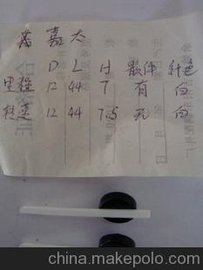 嘉大
D L H 散件 针色
里程 12 44 7 有 白
转速 12 44 7.5 无 白
china.makepolo.com